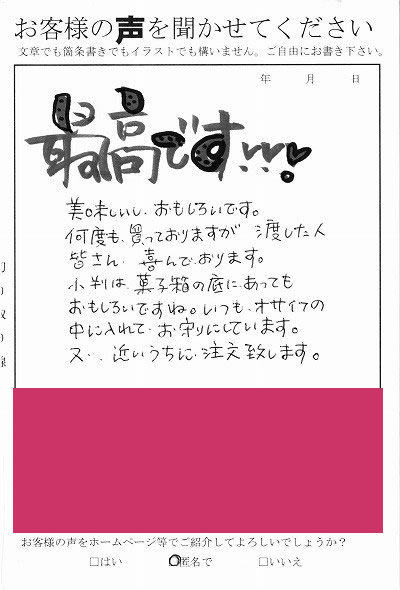 お客様の声を聞かせてください
文章でも箇条書きでもイラストでも構いません。ご自由にお書き下さい。
年 月 日
最高です!!!
美味しいし、おもしろいです。
何度も、買っておりますが 渡した人
皆さん、喜んで、おります。
小判は、菓子箱の底に、あっても
おもしろいですね。いつも、オサイフの
中に入れて、お守りにしています。
又、、近いうちに、注文致します。
お客様の声をホームページ等でご紹介してよろしいでしょうか?
□はい □匿名で □いいえ